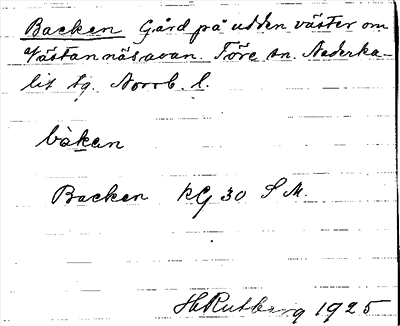 Backen Gård på udden väster om
Västannäsavan. Töre sn. Nederka-
lix tg. Norrb. l.
bàkan
Backen KG 30 S M.
HRutberg 1925